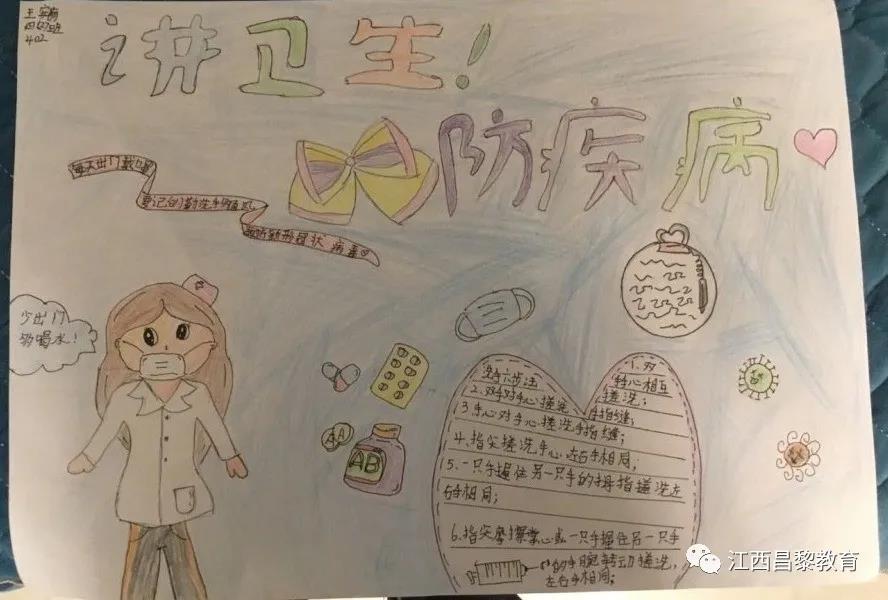 402
讲卫生!
防疾病
每天出门戴口罩
要记的勤洗手
新形冠状病毒
少出门
多喝水!
AB
洗手六步法
1.双
手心相互
搓洗;
2.双手对手心搓洗
手指缝;
3.手心对手心搓洗手指缝;
4.指尖搓洗手心左右手相同;
5.一只手握住另一只手的拇指搓洗左
右手相同;
6.指尖摩擦掌心或一只手握住另一只手
的手腕转动搓洗,
左右手相同;
江西昌黎教育